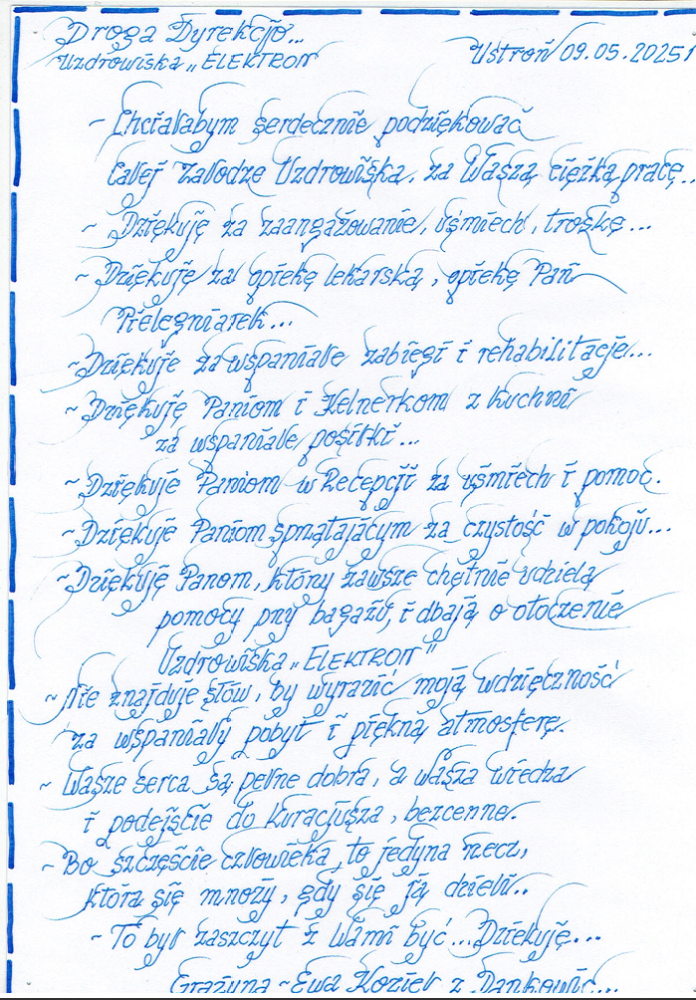 Droga Dyrekcjo...
Uzdrowiska „ELEKTRON" Ustroń 09.05.2025r
~ Chciałabym serdecznie podziękować
Całej Załodze Uzdrowiska, za Waszą ciężką pracę...
~ Dziękuję za zaangażowanie, uśmiech, troskę...
~ Dziękuję za opiekę lekarską, opiekę Pań
Pielęgniarek...
~ Dziękuję za wspaniałe zabiegi i rehabilitację...
~ Dziękuję Paniom i Kelnerkom z kuchni
za wspaniałe posiłki...
~ Dziękuję Paniom w Recepcji za uśmiech i pomoc.
~ Dziękuję Paniom sprzątającym za czystość w pokoju...
~ Dziękuję Panom, którzy zawsze chętnie udzielą
pomocy przy bagażu, i dbają o otoczenie
Uzdrowiska „ELEKTRON"
~ Nie znajduję słów, by wyrazić moją wdzięczność
za wspaniały pobyt i piękną atmosferę.
~ Wasze serca są pełne dobra, a Wasza wiedza
i podejście do kuracjusza, bezcenne.
~ Bo szczęście człowieka, to jedyna rzecz,
która się mnoży, gdy się ją dzieli..
~ To był zaszczyt z Wami być... Dziękuję...
Grażyna ~ Ewa Kozieł z Dankowic...